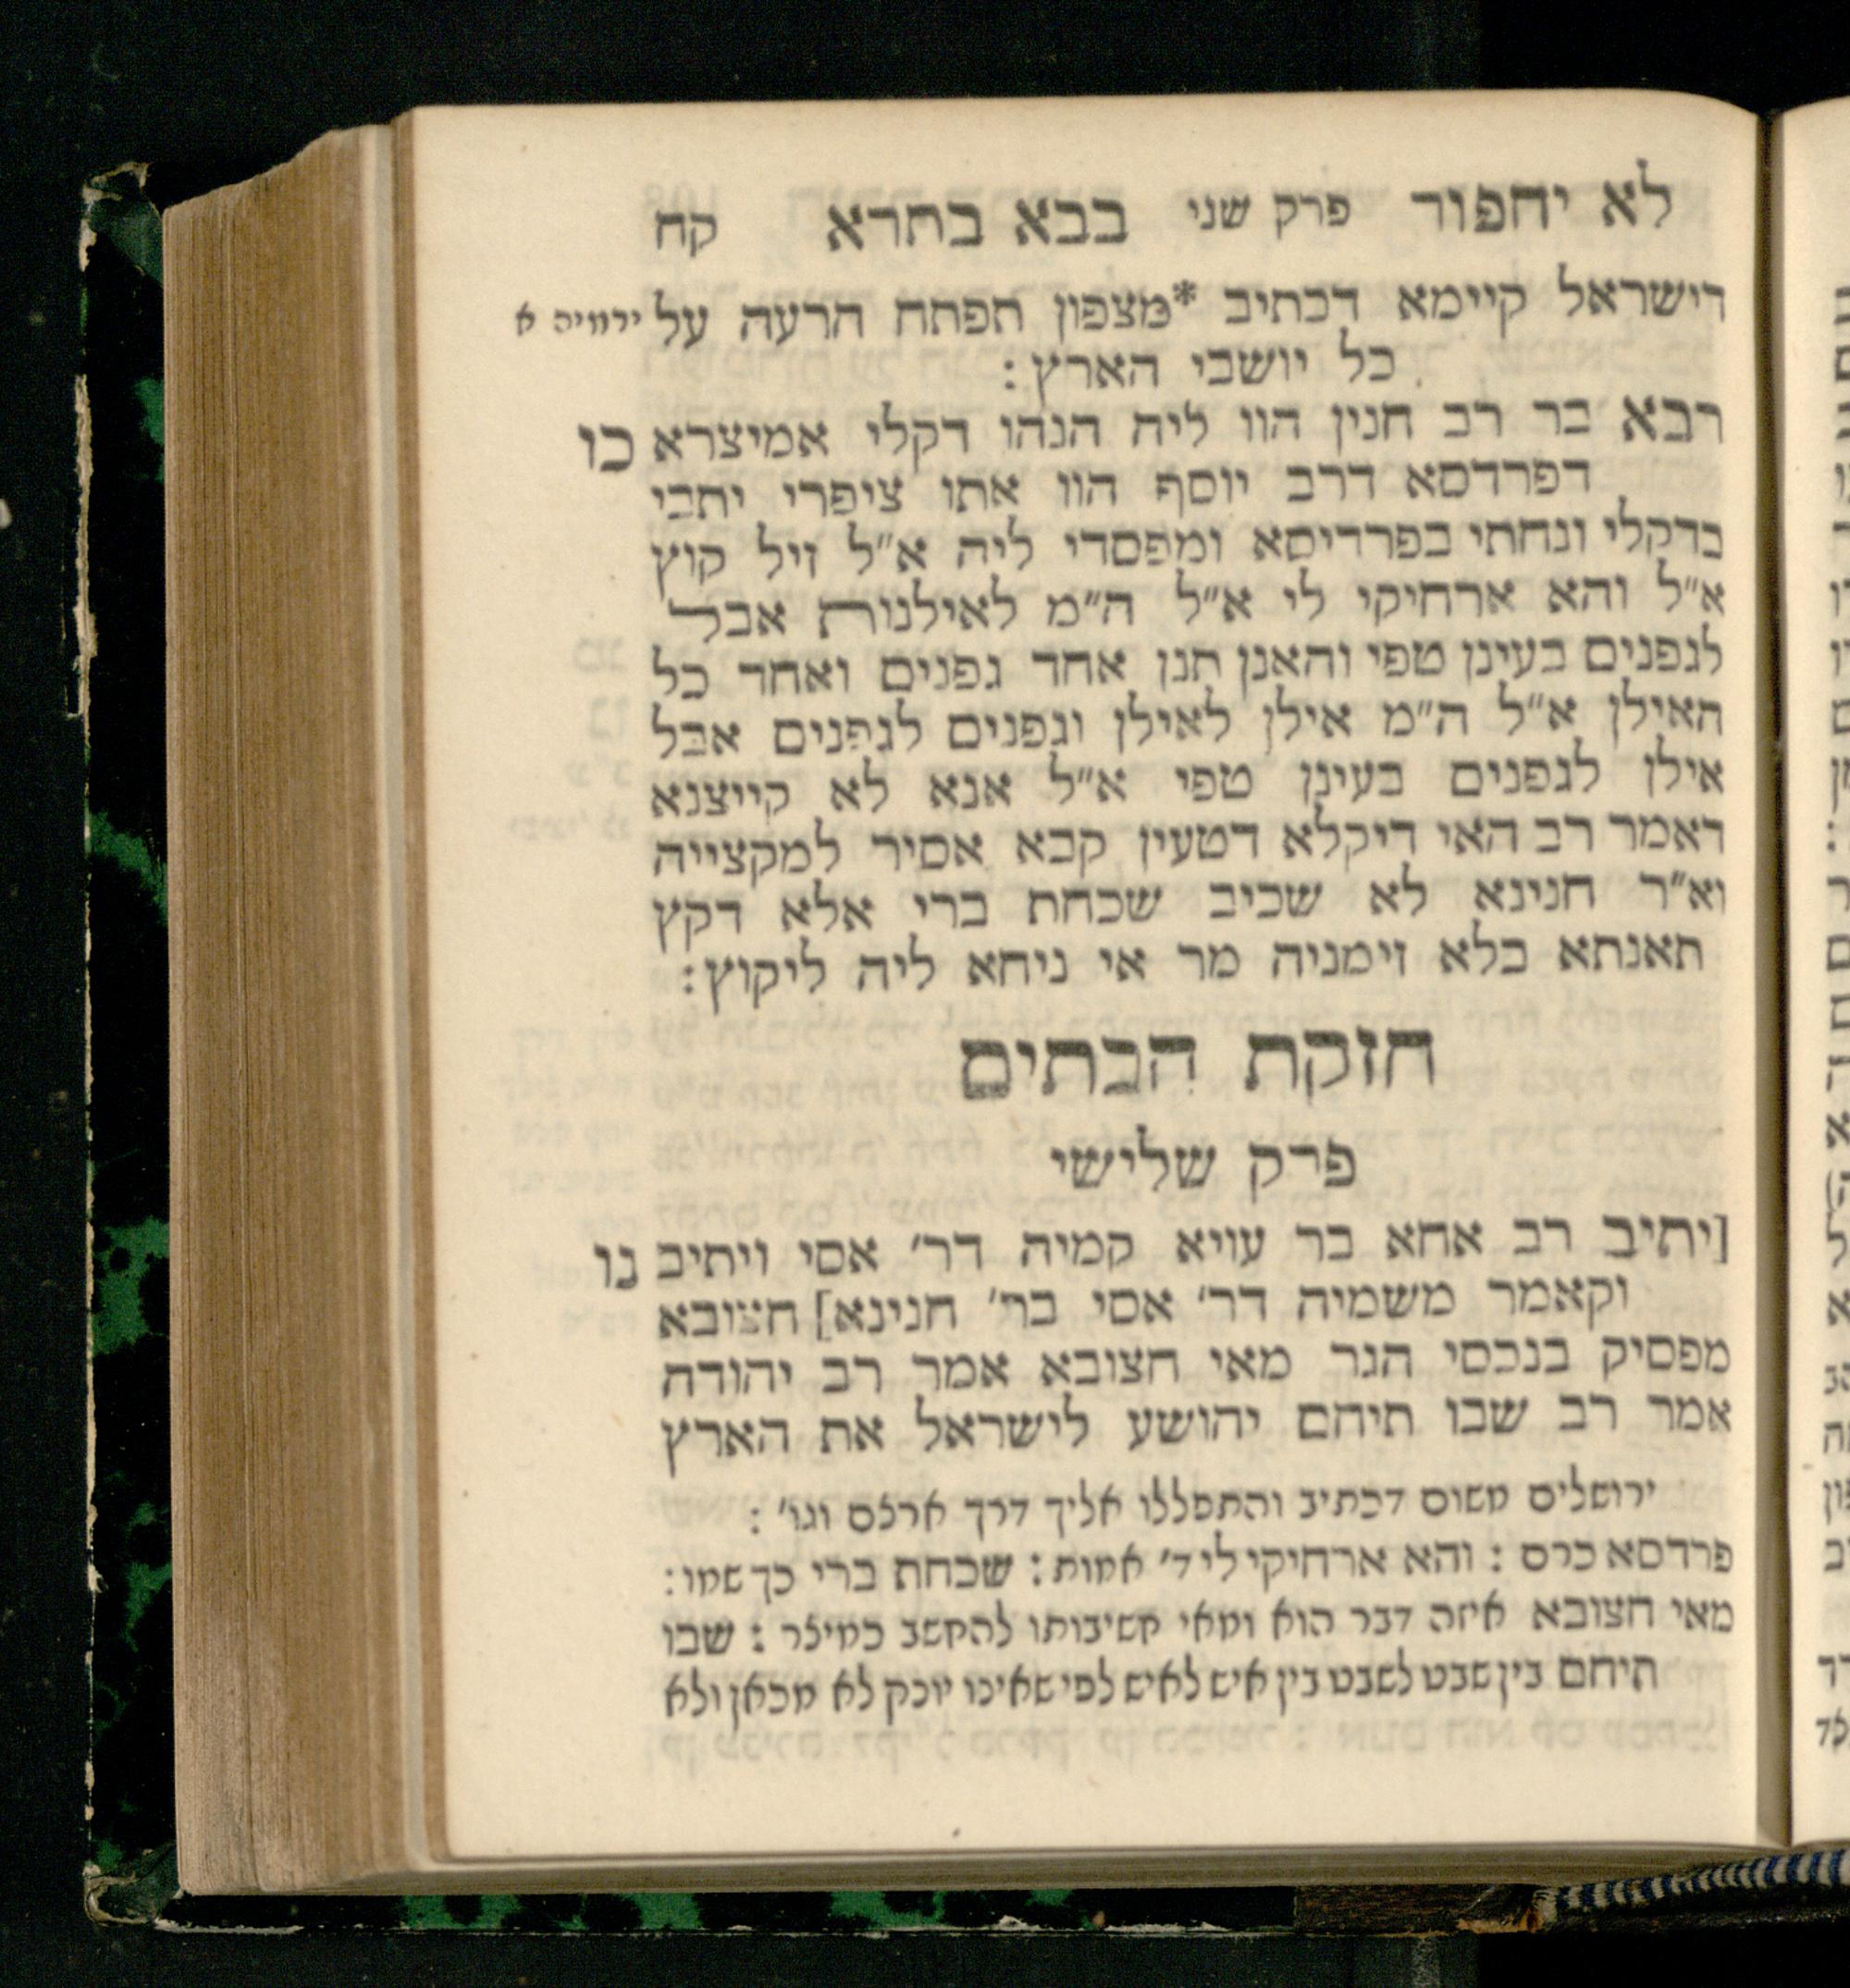 לא יחפור פרק שני בבא בתרא קח
דישראל קיימא דכתיב *מצפון תפתח הרעה על ירמיה א
כל יושבי הארץ :
רבא בר רב חנין הוו ליה הנהו דקלי אמיצרא כו
דפרדסא דרב יוסף הוו אתו ציפרי יתבי
בדקלי ונחתי בפרדיסא ומפסדי ליה א״ל זיל קוץ
א״ל והא ארחיקי לי א״ל ה״מ לאילנות אבל
לגפנים בעינן טפי והאנן תנן אחד גפנים ואחד כל
האילן א״ל ה״מ אילן לאילן וגפנים לגפנים אבל
אילן לגפנים בעינן טפי א״ל אנא לא קייצנא
דאמר רב האי דיקלא דטעין קבא אסיר למקצייה
וא״ר חנינא לא שכיב שכחת ברי אלא דקץ
תאנתא בלא זימניה מר אי ניחא ליה ליקוץ :
חזקת הבתים
פרק שלישי
[יתיב רב אחא בר עויא קמיה דר׳ אסי ויתיב נו
וקאמר משמיה דר׳ אסי בר׳ חנינא] חצובא
מפסיק בנכסי הגר מאי חצובא אמר רב יהודה
אמר רב שבו תיחם יהושע לישראל את הארץ
ירושלים משום דכתיב והתפללו אליך דרך ארצם וגו׳ :
פרדסא כרם : והא ארחיקי לי ד׳ אמות : שכחת ברי כך שמו :
מאי חצובא איזה דבר הוא ומאי חשיבותו להחשב כמיצר : שבו
תיחם בין שבט לשבט בין איש לאיש לפי שאינו יונק לא מכאן ולא